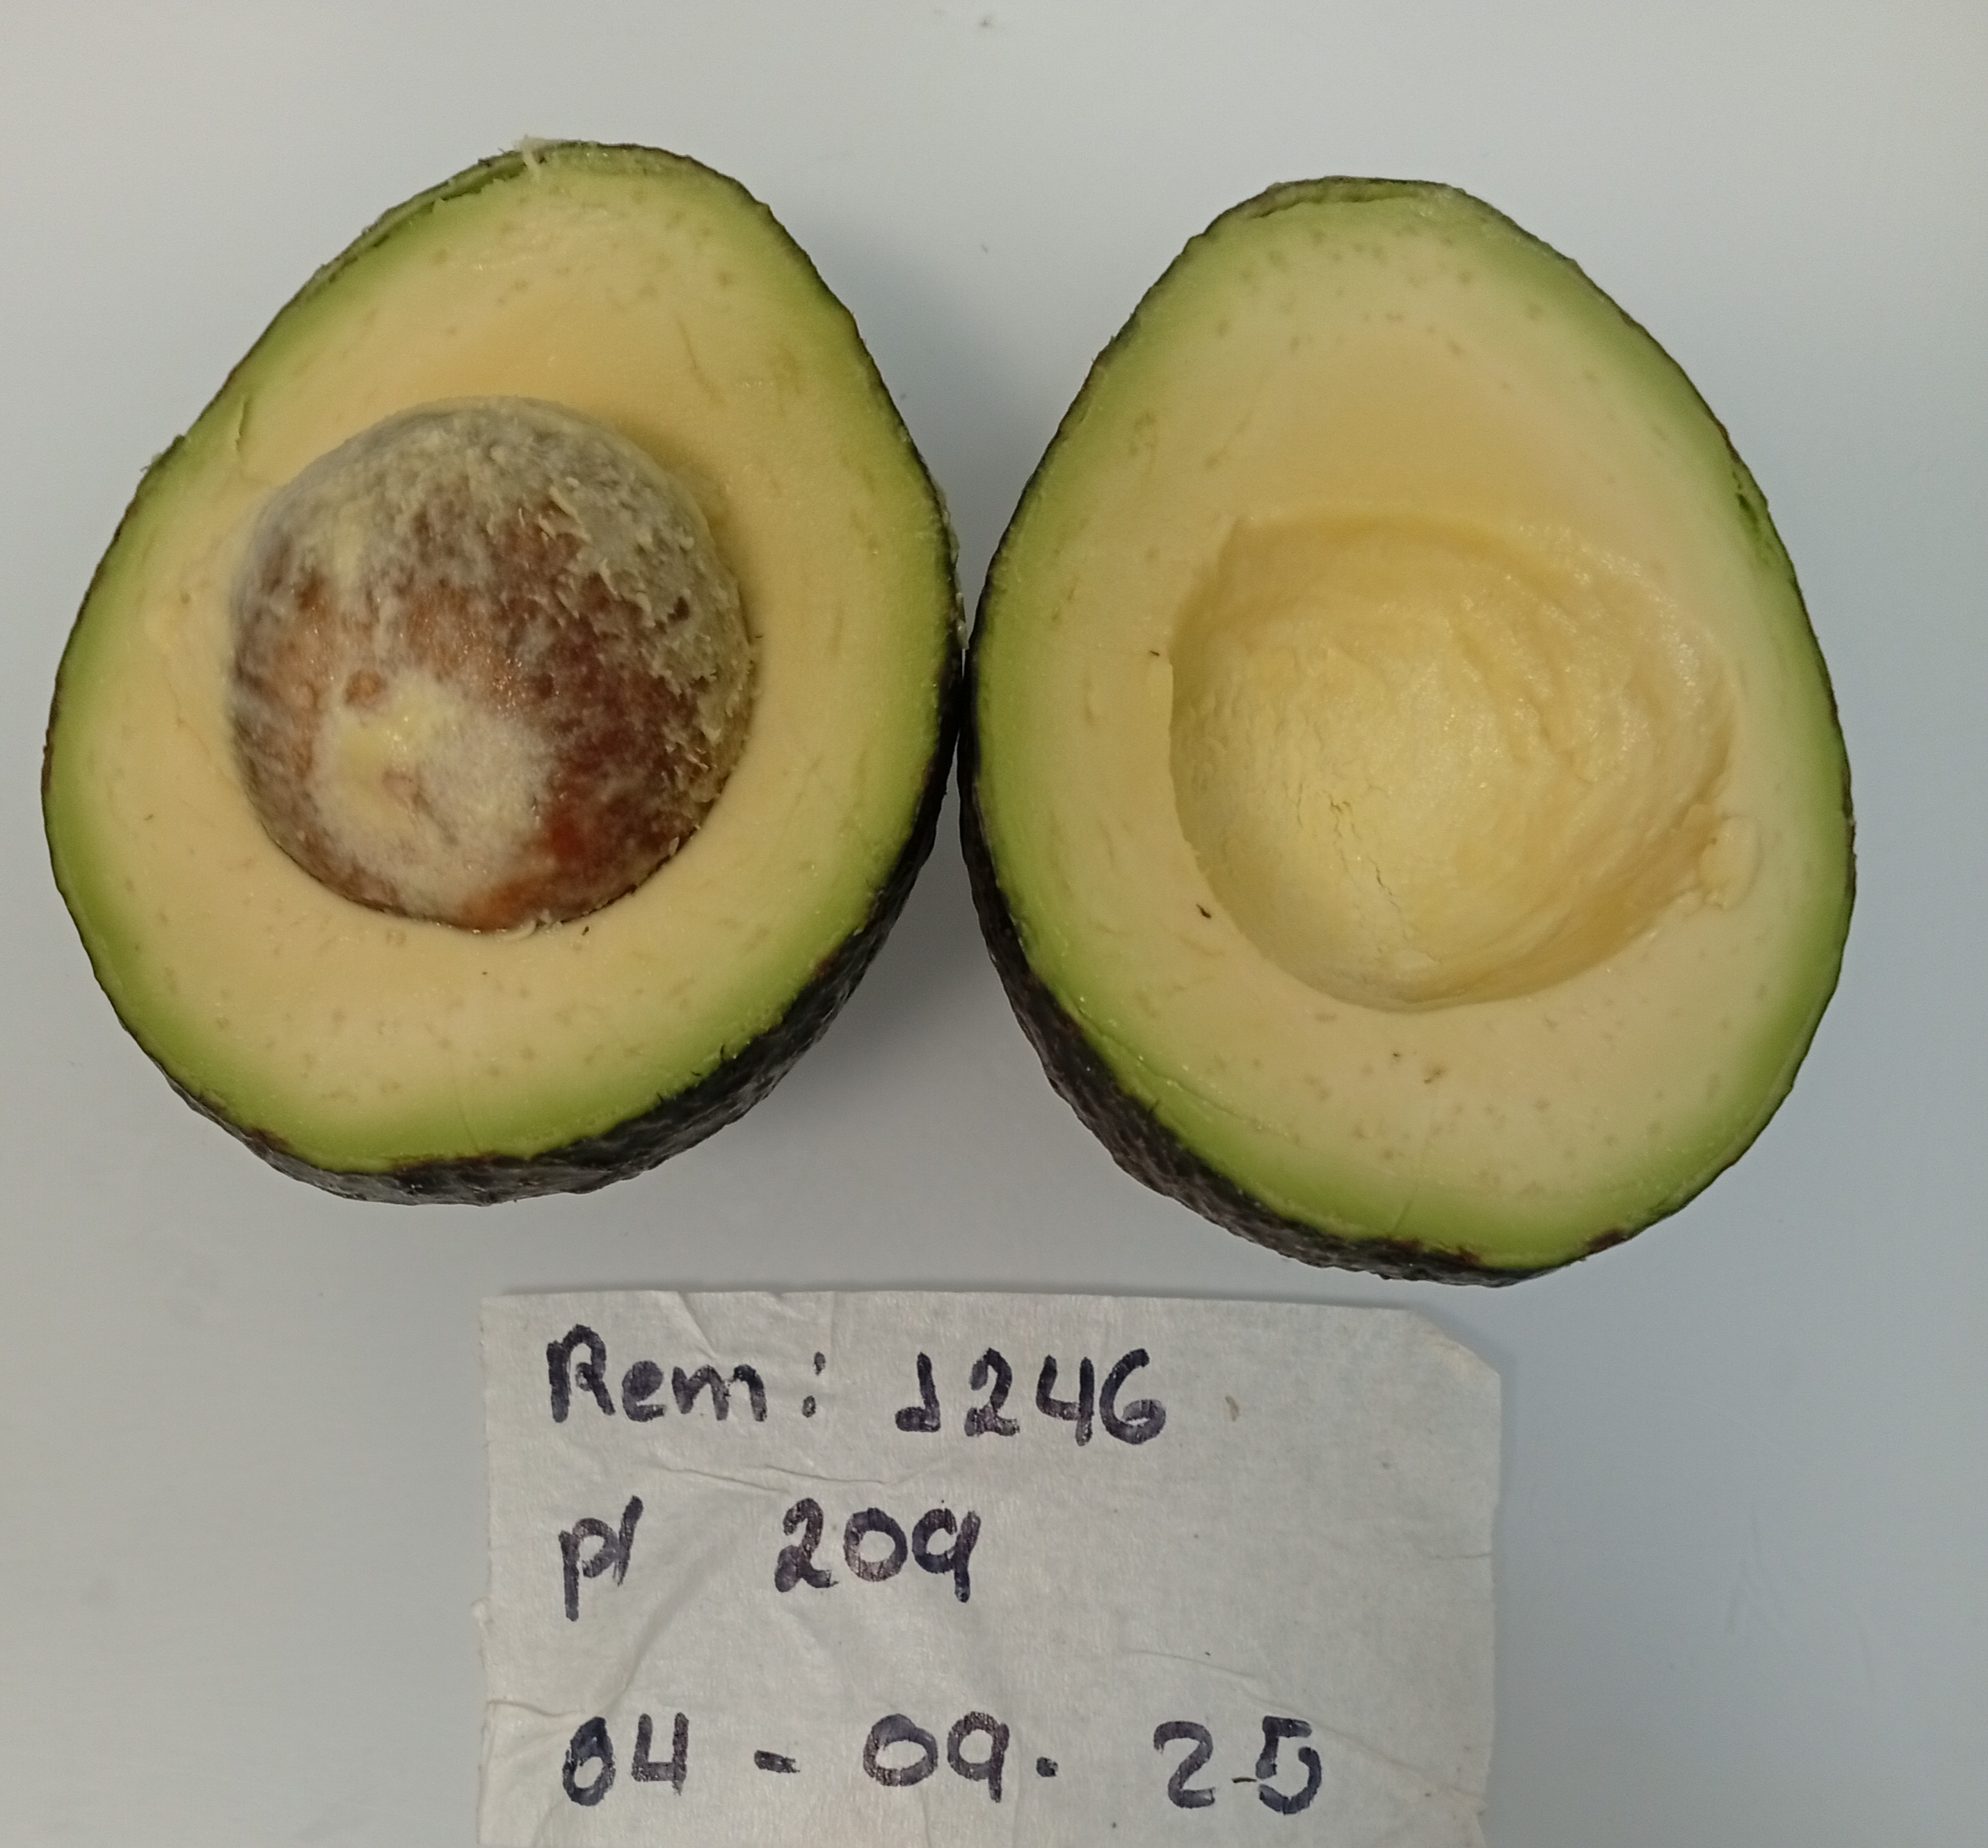 Rem: 1246
pl 209
04-09-25